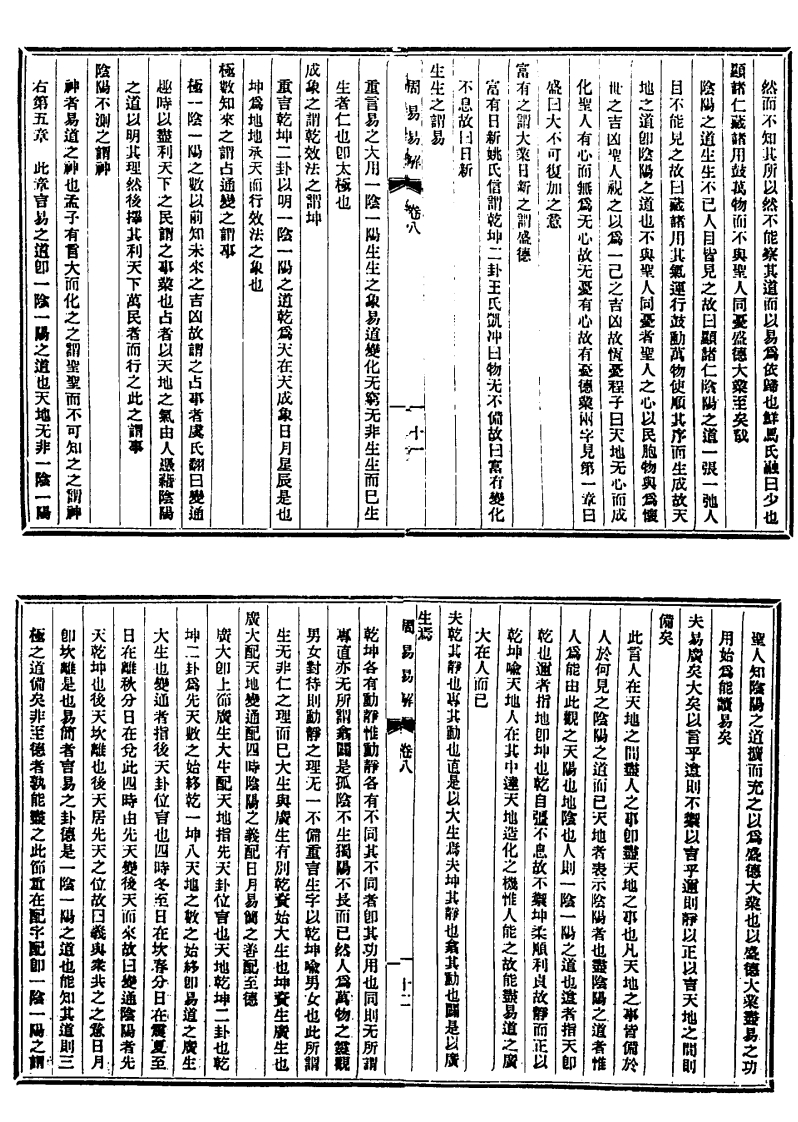 然而不知其所以然不能察其道而以易爲依歸也鮮馬氏融曰少也
顯諸仁藏諸用鼓萬物而不與聖人同憂盛德大業至矣哉
陰陽之道生生不已人目皆見之故曰顯諸仁陰陽之道一張一弛人
目不能見之故曰藏諸用其氣運行鼓動萬物使順其序而生成故天
地之道卽陰陽之道也不與聖人同憂者聖人之心以民胞物與爲懷
世之吉凶聖人視之以爲一己之吉凶故恆憂程子曰天地无心而成
化聖人有心而無爲无心故无憂有心故有憂德業兩字見第一章曰
盛曰大不可復加之意
富有之謂大業日新之謂盛德
富有日新姚氏信謂乾坤二卦王氏凱冲曰物无不備故曰富有變化
不息故曰日新
生生之謂易
周易易解
卷八
十一
重言易之大用一陰一陽生生之象易道變化无窮无非生生而已生
生者仁也卽太極也
成象之謂乾效法之謂坤
重言乾坤二卦以明一陰一陽之道乾爲天在天成象日月星辰是也
坤爲地地承天而行效法之象也
極數知來之謂占通變之謂事
極一陰一陽之數以前知未來之吉凶故謂之占事者虞氏翻曰變通
趣時以盡利天下之民謂之事業也占者以天地之氣由人憑藉陰陽
之道以明其理然後擇其利天下萬民者而行之此之謂事
陰陽不測之謂神
神者易道之神也孟子有言大而化之之謂聖聖而不可知之之謂神
右第五章　此章言易之道卽一陰一陽之道也天地无非一陰一陽
聖人知陰陽之道擴而充之以爲盛德大業也以盛德大業盡易之功
用始爲能讀易矣
夫易廣矣大矣以言乎遠則不禦以言乎邇則靜以正以言天地之間則
備矣
此言人在天地之間盡人之事卽盡天地之事也凡天地之事皆備於
人於何見之陰陽之道而已天地者表示陰陽者也盡陰陽之道者惟
人爲能由此觀之天陽也地陰也人則一陰一陽之道也遠者指天卽
乾也邇者指地卽坤也乾自彊不息故不禦坤柔順利貞故靜而正以
乾坤喩天地人在其中達天地造化之機惟人能之故能盡易道之廣
大在人而已
夫乾其靜也專其動也直是以大生焉夫坤其靜也翕其動也闢是以廣
生焉
周易易解
卷八
十二
乾坤各有動靜惟動靜各有不同其不同者卽其功用也同則无所謂
專直亦无所謂翕闢是孤陰不生獨陽不長而已然人爲萬物之靈觀
男女對待則動靜之理无一不備重言生字以乾坤喩男女也此所謂
生无非仁之理而已大生與廣生有別乾資始大生也坤資生廣生也
廣大配天地變通配四時陰陽之義配日月易簡之善配至德
廣大卽上節廣生大生配天地指先天卦位言也天地乾坤二卦也乾
坤二卦爲先天數之始終乾一坤八天地之數之始終卽易道之廣生
大生也變通者指後天卦位言也四時冬至日在坎春分日在震夏至
日在離秋分日在兌此四時由先天變後天而來故曰變通陰陽者先
天乾坤也後天坎離也後天居先天之位故曰義與乘共之之意日月
卽坎離是也易簡者言易之卦德是一陰一陽之道也能知其道則三
極之道備矣非至德者孰能盡之此節重在配字配卽一陰一陽之謂